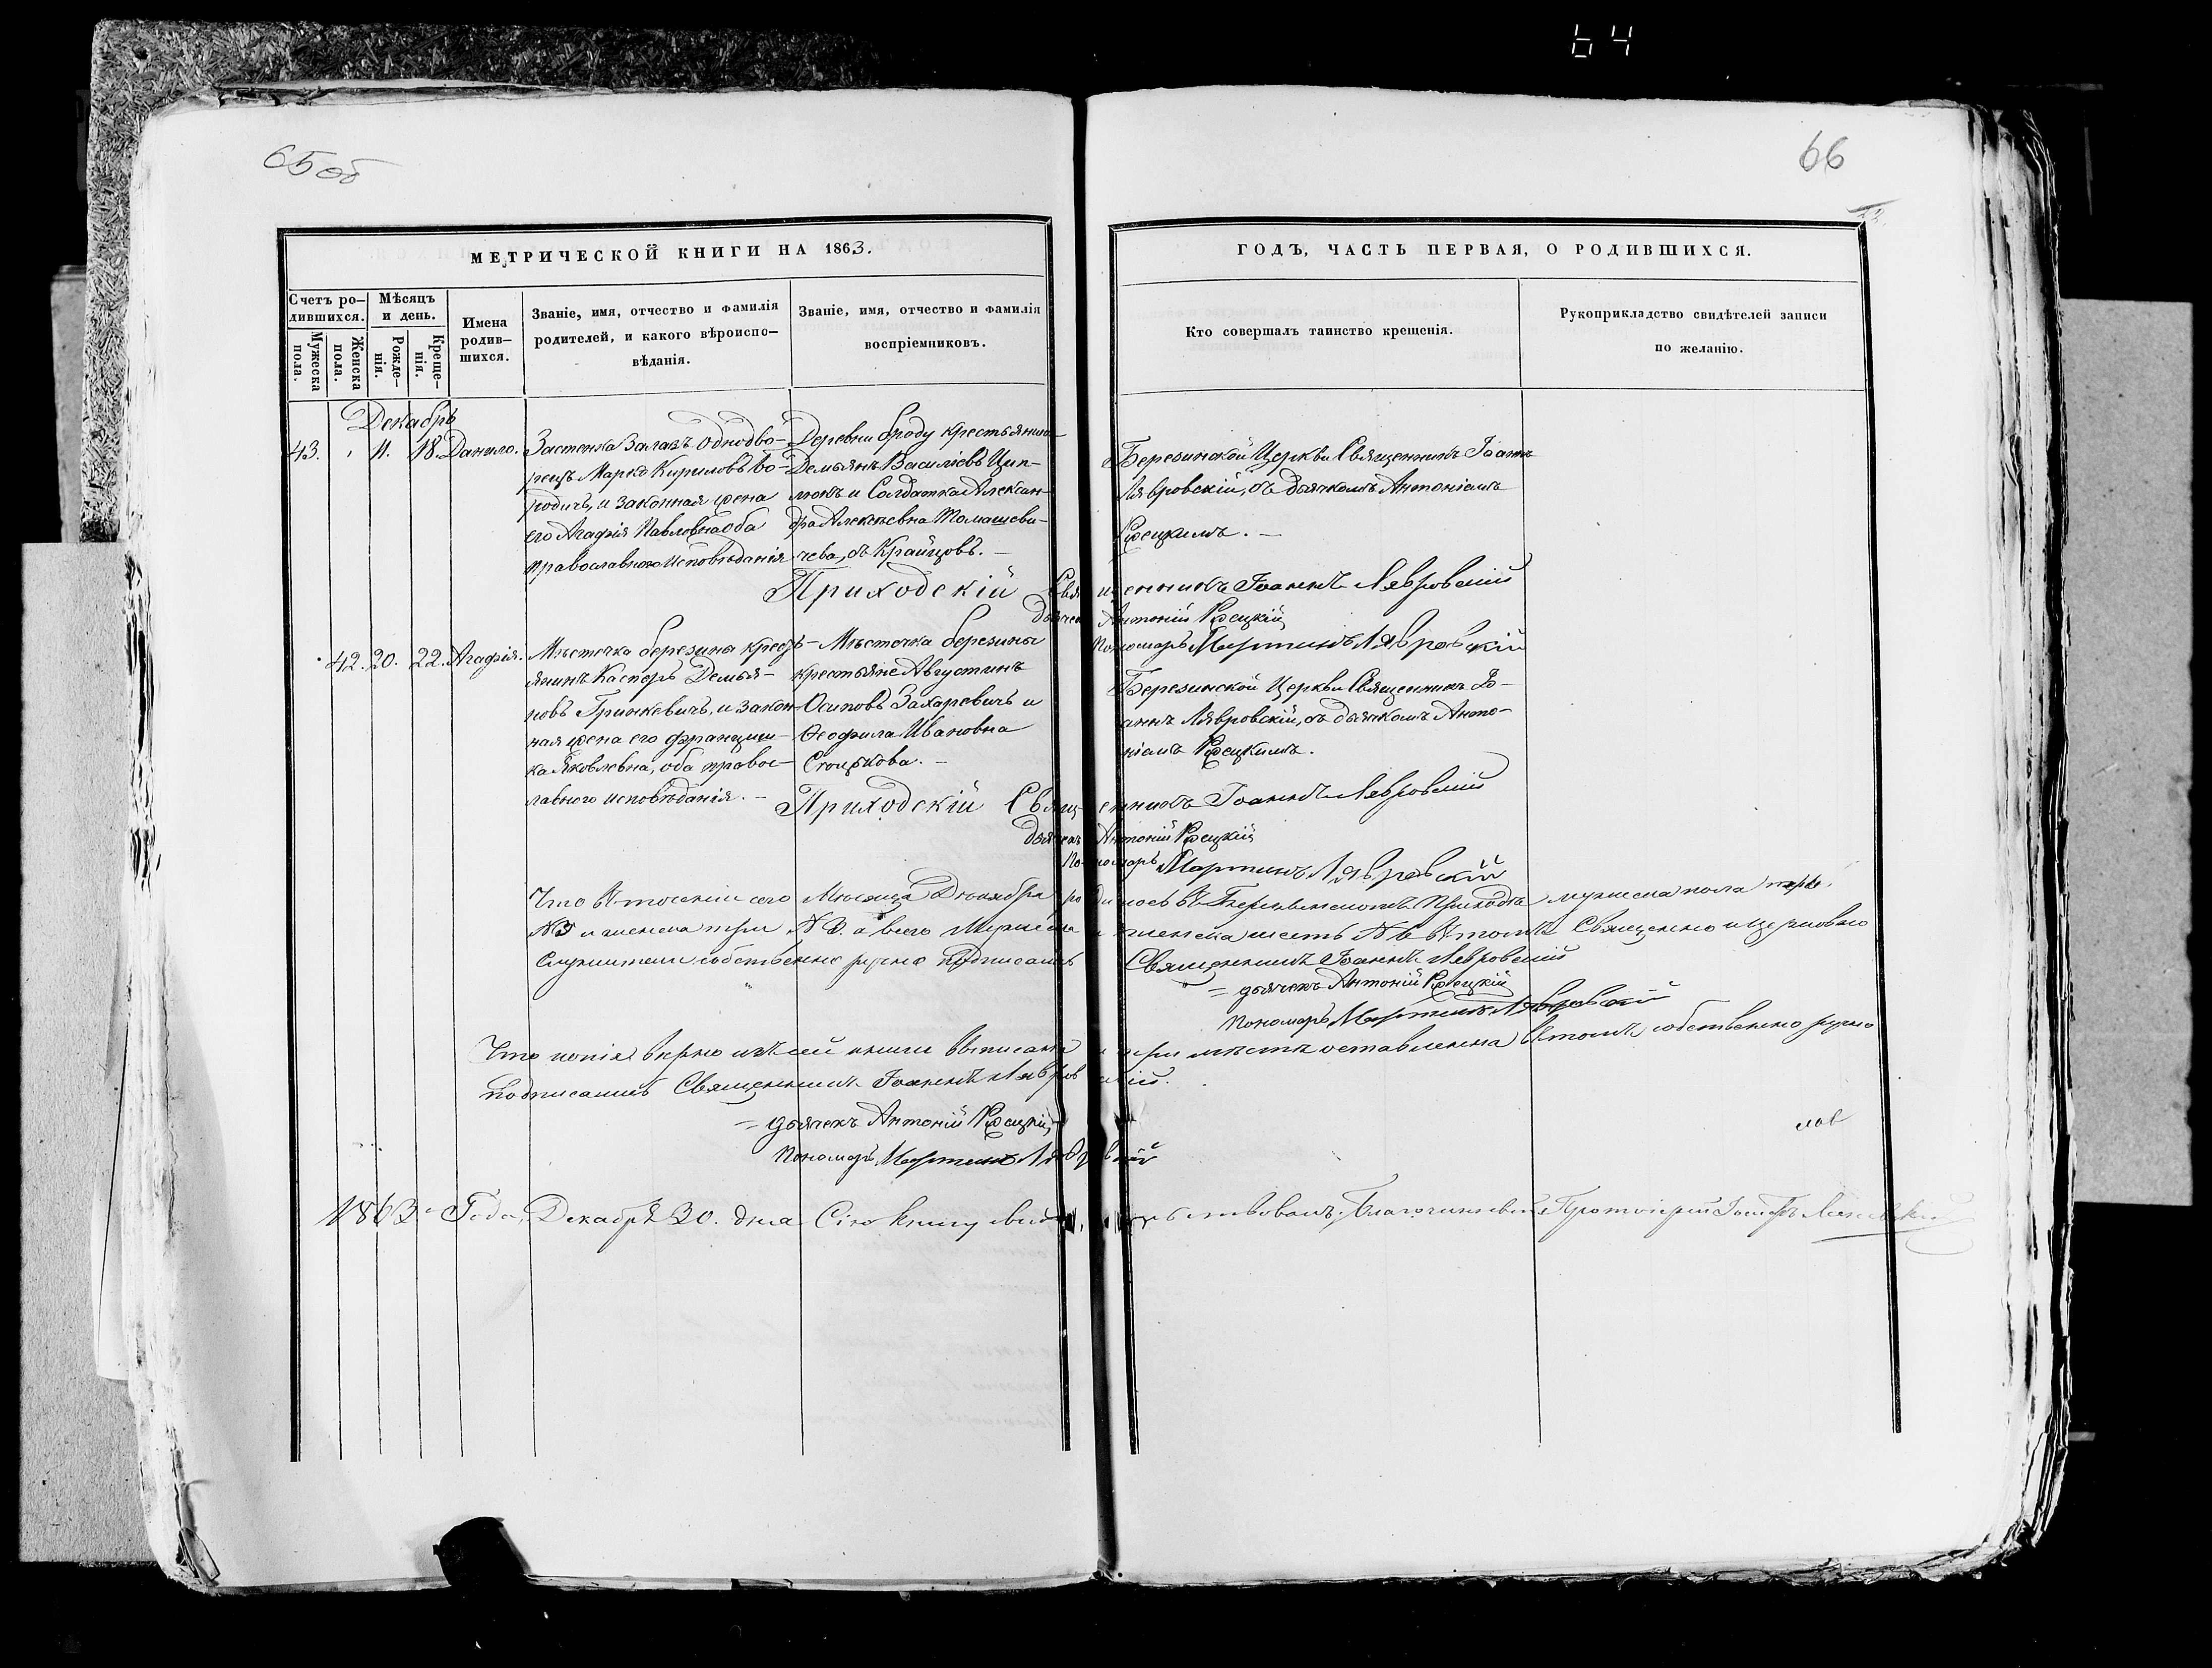 64
65 об
66
МЕТРИЧЕСКОЙ КНИГИ НА 1863.
ГОДЪ, ЧАСТЬ ПЕРВАЯ, О РОДИВШИХСЯ.
Счетъ ро-
дившихся.
Мужеска
пола.
Женска
пола.
Мѣсяцъ
и день.
Рожде-
нія.
Креще-
нія.
Имена
родив-
шихся.
Званіе, имя, отчество и фамилія
родителей, и какого вѣроиспо-
вѣданія.
Званіе, имя, отчество и фамилія
воспріемниковъ.
Кто совершалъ таинство крещенія.
Рукоприкладство свидѣтелей записи
по желанію.
Декабрь
43. 11. 18. Данило.
Застенка Залазъ однодво-
рецъ Марко Кириловъ Во-
родичъ, и законная жена
его Агафія Павловна оба
православного исповѣданія
Деревни броду крестьянинъ
Демьянъ Василіевъ Цып-
люкъ и Солдатка Алексан-
дра Алексѣевна Томашеви-
чева, съ Крайцовъ.
Березинской Церкви Священникъ Іоаннъ
Лявровскій, съ дьячкомъ Антоніемъ
Приходскій Священникъ Іоаннъ Лявровскій
дьячекъ Антоній
Пономарь Мартинъ Лявровскій
42. 20. 22. Агафія.
Мѣстечка березины кресть-
янинъ Касперъ Демья-
новъ Гринкевичъ, и закон-
ная жена его Францыш-
ка Яковлевна, оба правос-
лавного исповѣданія.
Мѣстечка березины
крестьяне Августинъ
Осиповъ Захаревичъ и
Ѳеофила Ивановна
Березинской Церкви Священникъ Іо-
аннъ Лявровскій, съ дьячкомъ Анто-
ніемъ
Приходскій Священникъ Іоаннъ Лявровскій
дьячекъ Антоній
Пономарь Мартинъ Лявровскій
Что въ теченіи сего Мѣсяца Декабря родилось въ Березинскомъ Приходѣ мужеска пола
№ 3 и женска три № 3. а всего Мужеска и женска шесть № 6 въ томъ Священно и церковно
служители собственно ручно подписались Священникъ Іоаннъ Лявровскій
дьячекъ Антоній
Пономарь Мартинъ Лявровскій
Что копія вѣрно изъ сей книги выписана и при мѣстѣ оставленна въ томъ собственно ручно
подписались Священникъ Іоаннъ Лявровскій.
дьячекъ Антоній
Пономарь Мартинъ Лявровскій
1863 Года, Декабря 30. дня Сію книгу свидѣтельствовалъ Благочинный Протоіерей